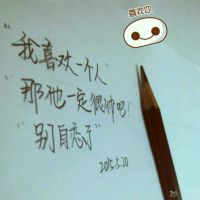 喜欢你
"我喜欢一个人"
"那他一定很帅吧！"
"别自恋了"
2015.5.20